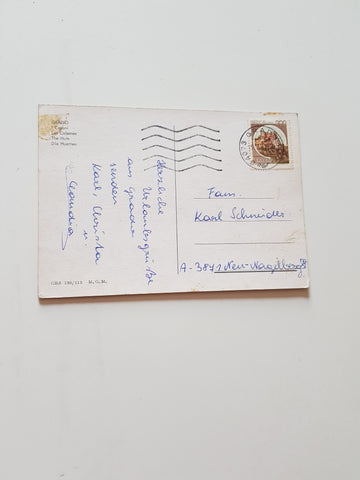 GRADO
I Casoni
Les Cabanes
The Huts
Die Huetten
Herzliche
Urlaubsgrüße
aus Grado
senden
Karl, Christa
u.
Claudia
Fam.
Karl Schneider
A-3871 Neu-Nagelberg
GRA 130/113 M.G.M.